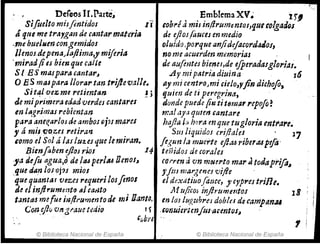 Desseos II. Parte,
Si suelto mis sentidos 11
á que me traygan de cantar materia
me huelen con gemidos
llenos de pena, lastima, y miseria
mirad si es bien que calle
SI ES mas para cantar,
O ES mas para llorar tan triste valle.
Si tal vez me retientan 13
de mi primera edad verdes cantares
en lagrimas rebientan
para anegarlos de ambos ojos mares
y á mis vozes retiran
como el Sol á las luzes que le miran.
Bien saben estos rios 14
ya de su agua, ó de las perlas llenos,
que dan los ojos mios
que quantas vezes requeri los senos
de el instrumento al canto
tantas me fue instrumento de mi llanto.
Con esso vn grave tedio 15
cobré
Emblema XV. 159
cobré á mis instrumentos, que colgados
de estos sauces en medio
oluido, porque ansi desacordados,
no me acuerden memorias
de ausentes bienes, de esperadas glorias.
Ay mi patria diuina 16
ay mi centro, mi cielo, y fin dichoso,
quien de ti peregrina,
donde puede sin ti tomar reposo?
mal aya quien cantare
hasta la hora en que tu gloria entrare.
Sus liquidos cristales 17
segun la muerte estas riberas pisa
teñidos de corales
corren á vn muerto mar á toda prisa,
y sus margenes viste
el dexatiuo sauce, y cypres triste.
Musicos instrumentos 18
en los lugubres dobles de campanas
conuierten sus acentos,
y
© Biblioteca Nacional de España
© Biblioteca Nacional de España